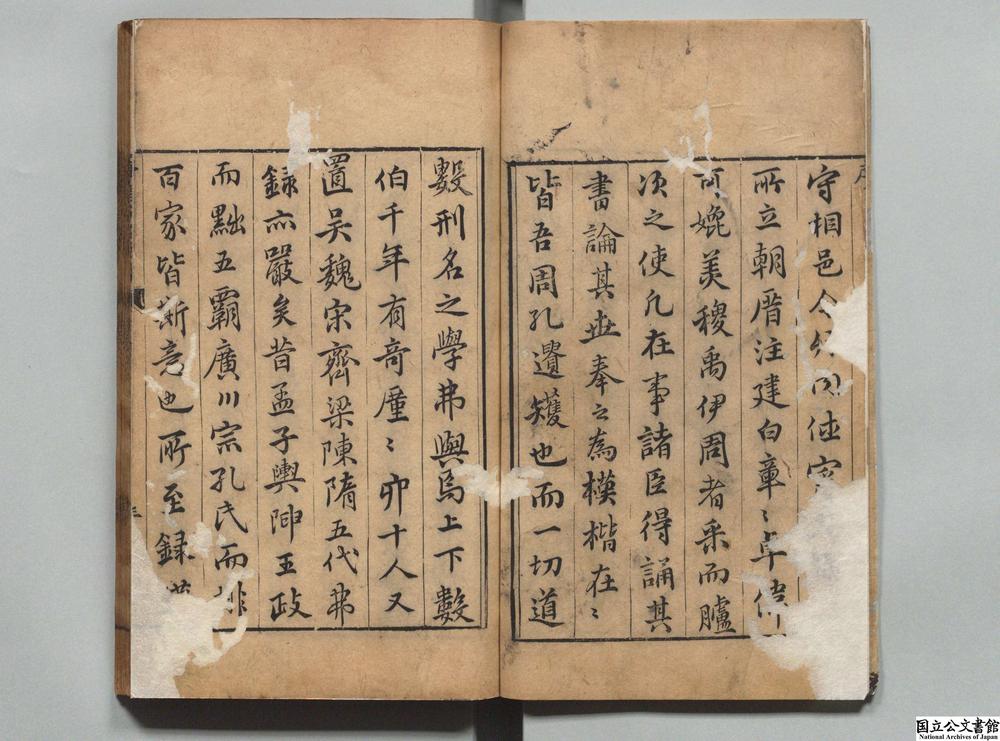 守相邑令
所立朝厝注建白章〻卓偉
可媲美稷禹伊周者采而臚
次之使凡在事諸臣得誦其
書論其世奉之為模楷在〻
皆吾周孔遺矱也而一切道
數刑名之學弗與焉上下數
伯千年有奇廑〻卯十人又
置吴魏宋齊梁陳隋五代弗
録亦嚴矣昔孟子輿王政
而黜五覇廣川宗孔氏而排
百家皆斯意也所至録
国立公文書館
National Archives of Japan